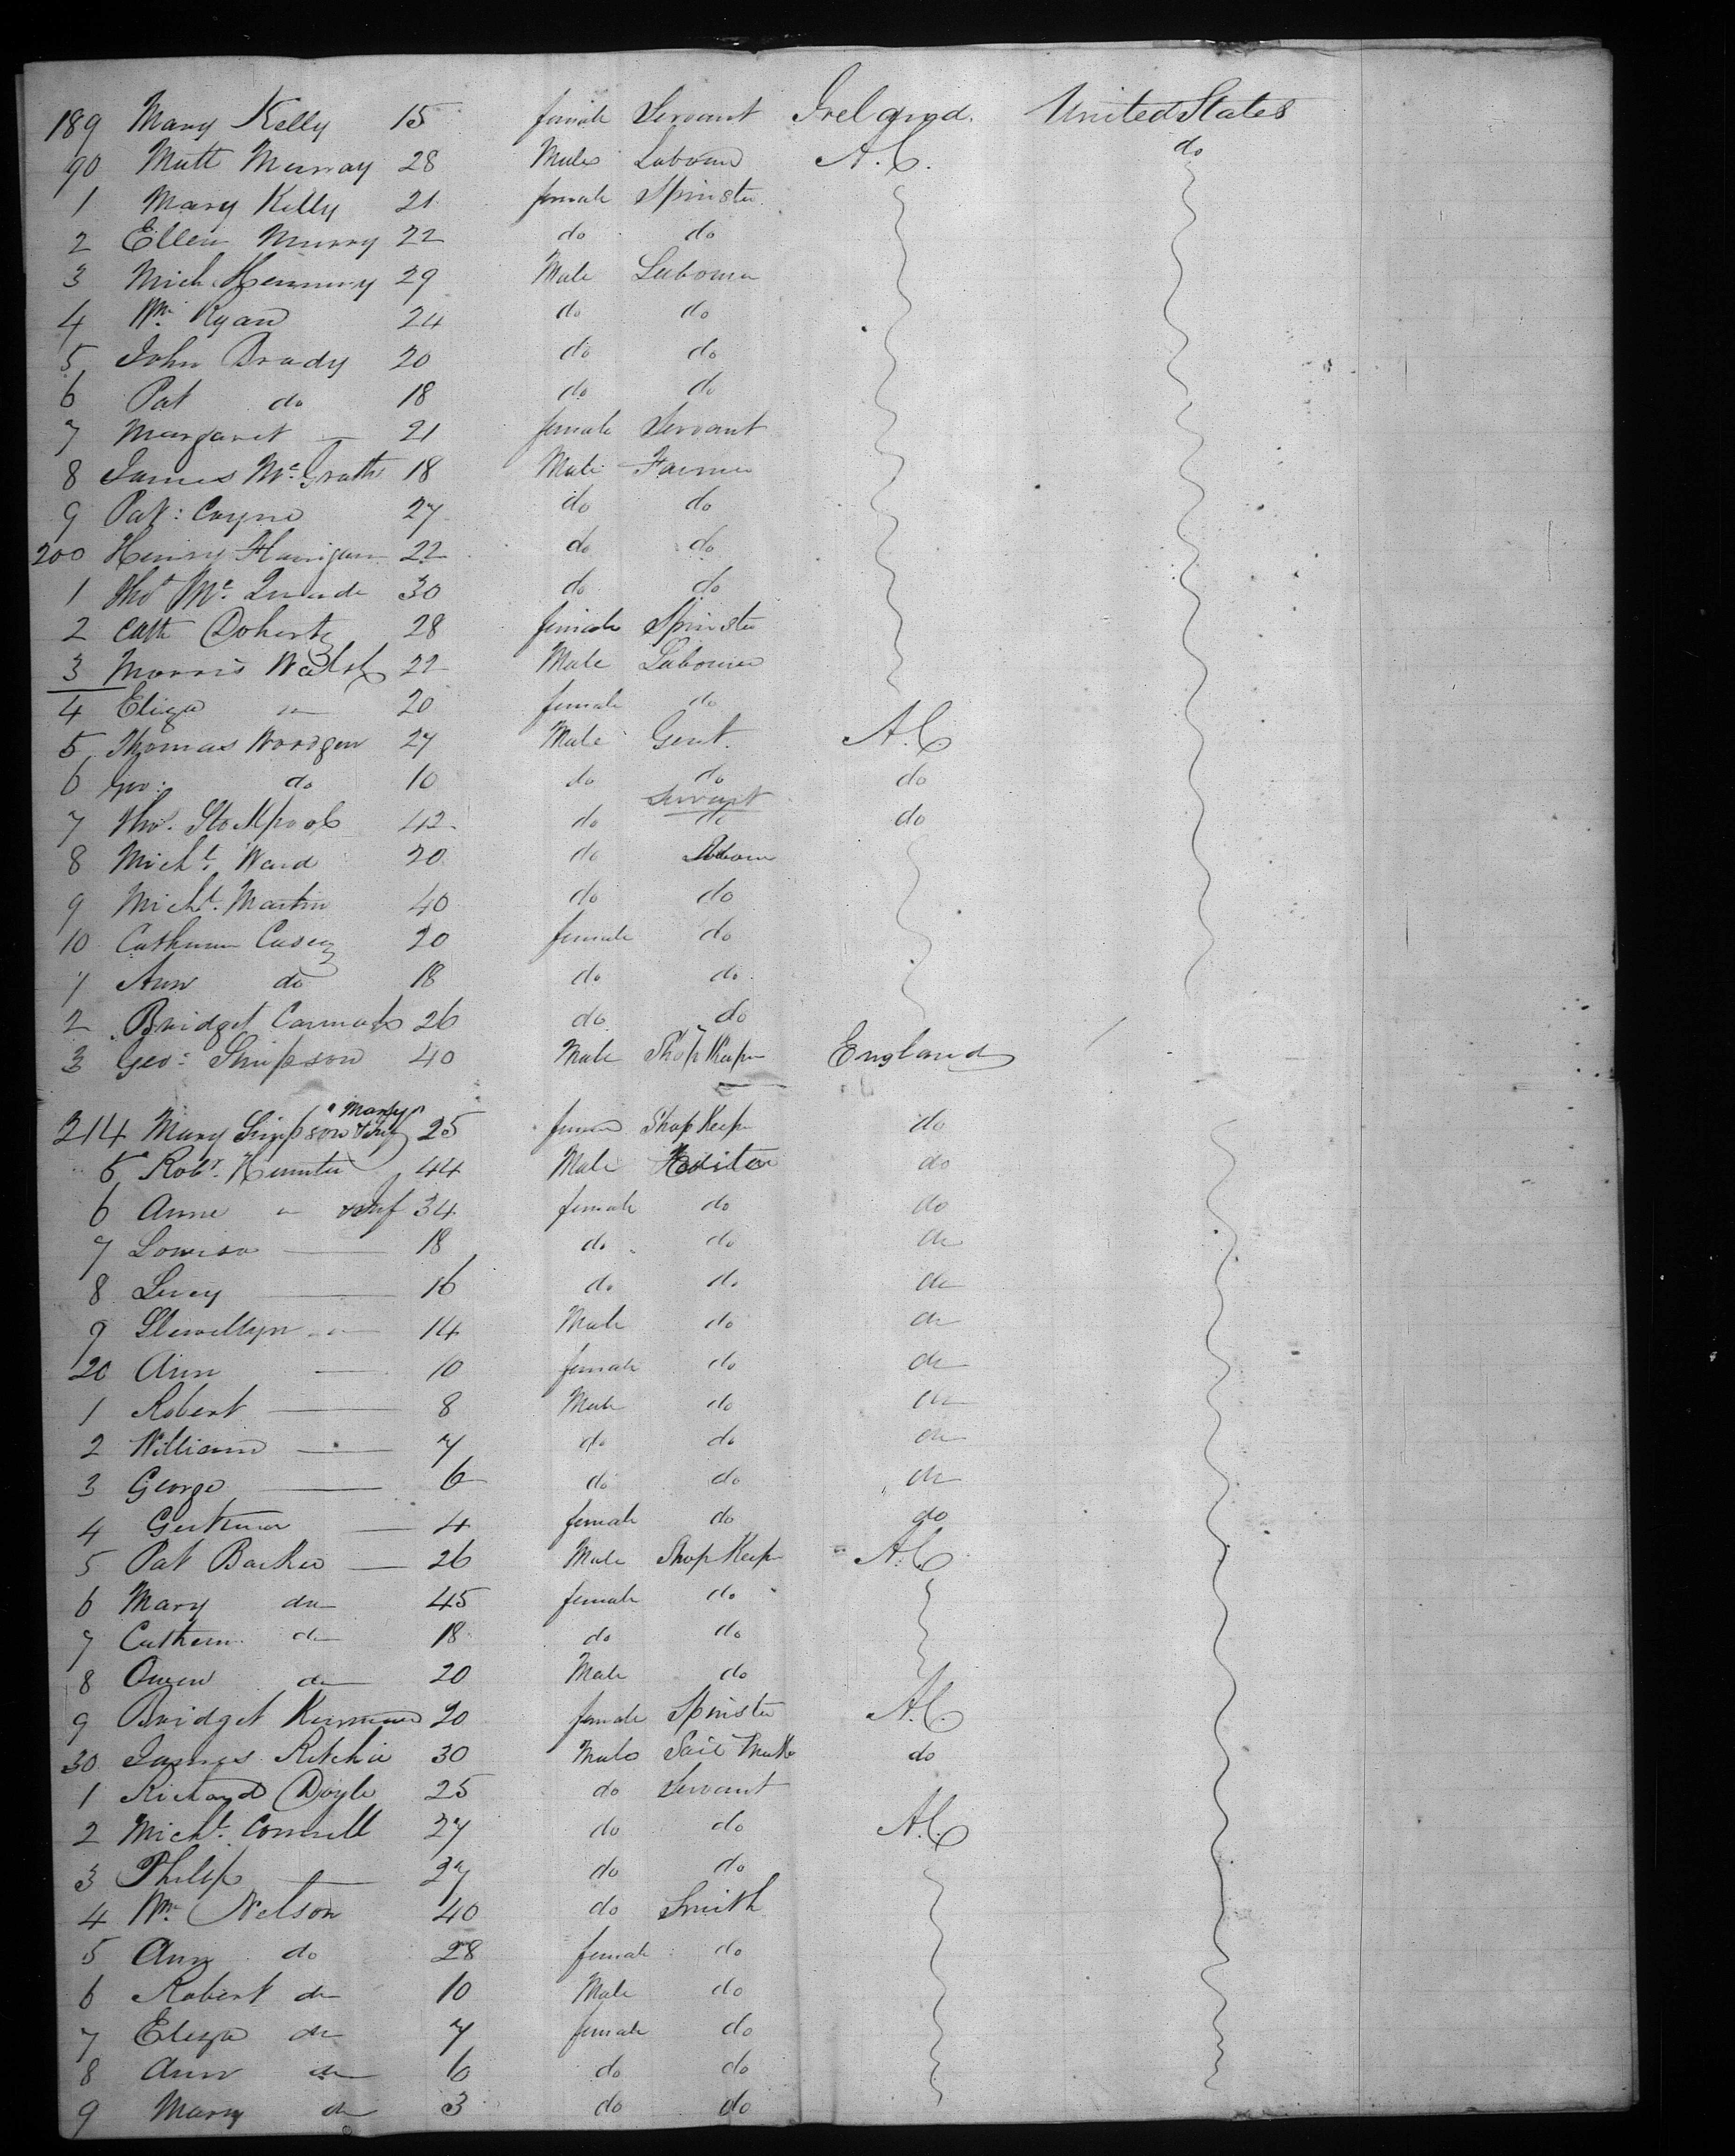 189 Mary Kelly 15 female Servant Ireland. United States
90 Matt Murray 28 Male Labourer do
1 Mary Kelly 21 female Spinster
2 Ellen Murry 22 do do
3 Mich 29 Male Labourer
4 Wm Ryan 24 do do
5 John Brady 20 do do
6 Pat do 18 do do
7 Margaret — 21 female Servant
8 James Mc Grath 18 Male Farmer
9 Pat: Coyne 27 do do
200 Henry Flanigan 22 do do
1 Thos Mc 30 do do
2 Cath Doherty 28 female Spinster
3 Morris Walsh 22 Male Labourer
4 Eliza 20 female do
5 Thomas 27 Male Gent.
6 do 10 do do do
Servant
7 Thos. Stockpool 42 do do do
8 Michl. Ward 20 do
9 Michl. Martin 40 do do
10 Casey 20 female do
1 Ann do 18 do do
2 Bridget 26 do do
3 Geo: Simpson 40 Male Shop Keeper England
214 Mary Simpson 25 Shop Keep do
5 Robt. Hunter 44 Male do
6 Anne 34 female do do
7 Louisa — 18 do do do
8 Lucy — 16 do do do
9 Llewellyn 14 Male do do
20 Ann — 10 female do do
1 Robert — 8 Male do do
2 William — 7 do do do
3 George — 6 do do do
4 — 4 female do do
5 Pat — 26 Male Shop Keep
6 Mary do 45 female do
7 do 18 do do
8 Owen do 20 Male do
9 Bridget 20 female Spinster
30 James Ritchie 30 Male Sail do
1 Richard Doyle 25 do Servant
2 Michl. 27 do do
3 Philip — 27 do do
4 Wm. Nelson 40 do Smith
5 Ann do 28 female do
6 Robert do 10 Male do
7 Eliza do 7 female do
8 Ann do 6 do do
9 Mary do 3 do do